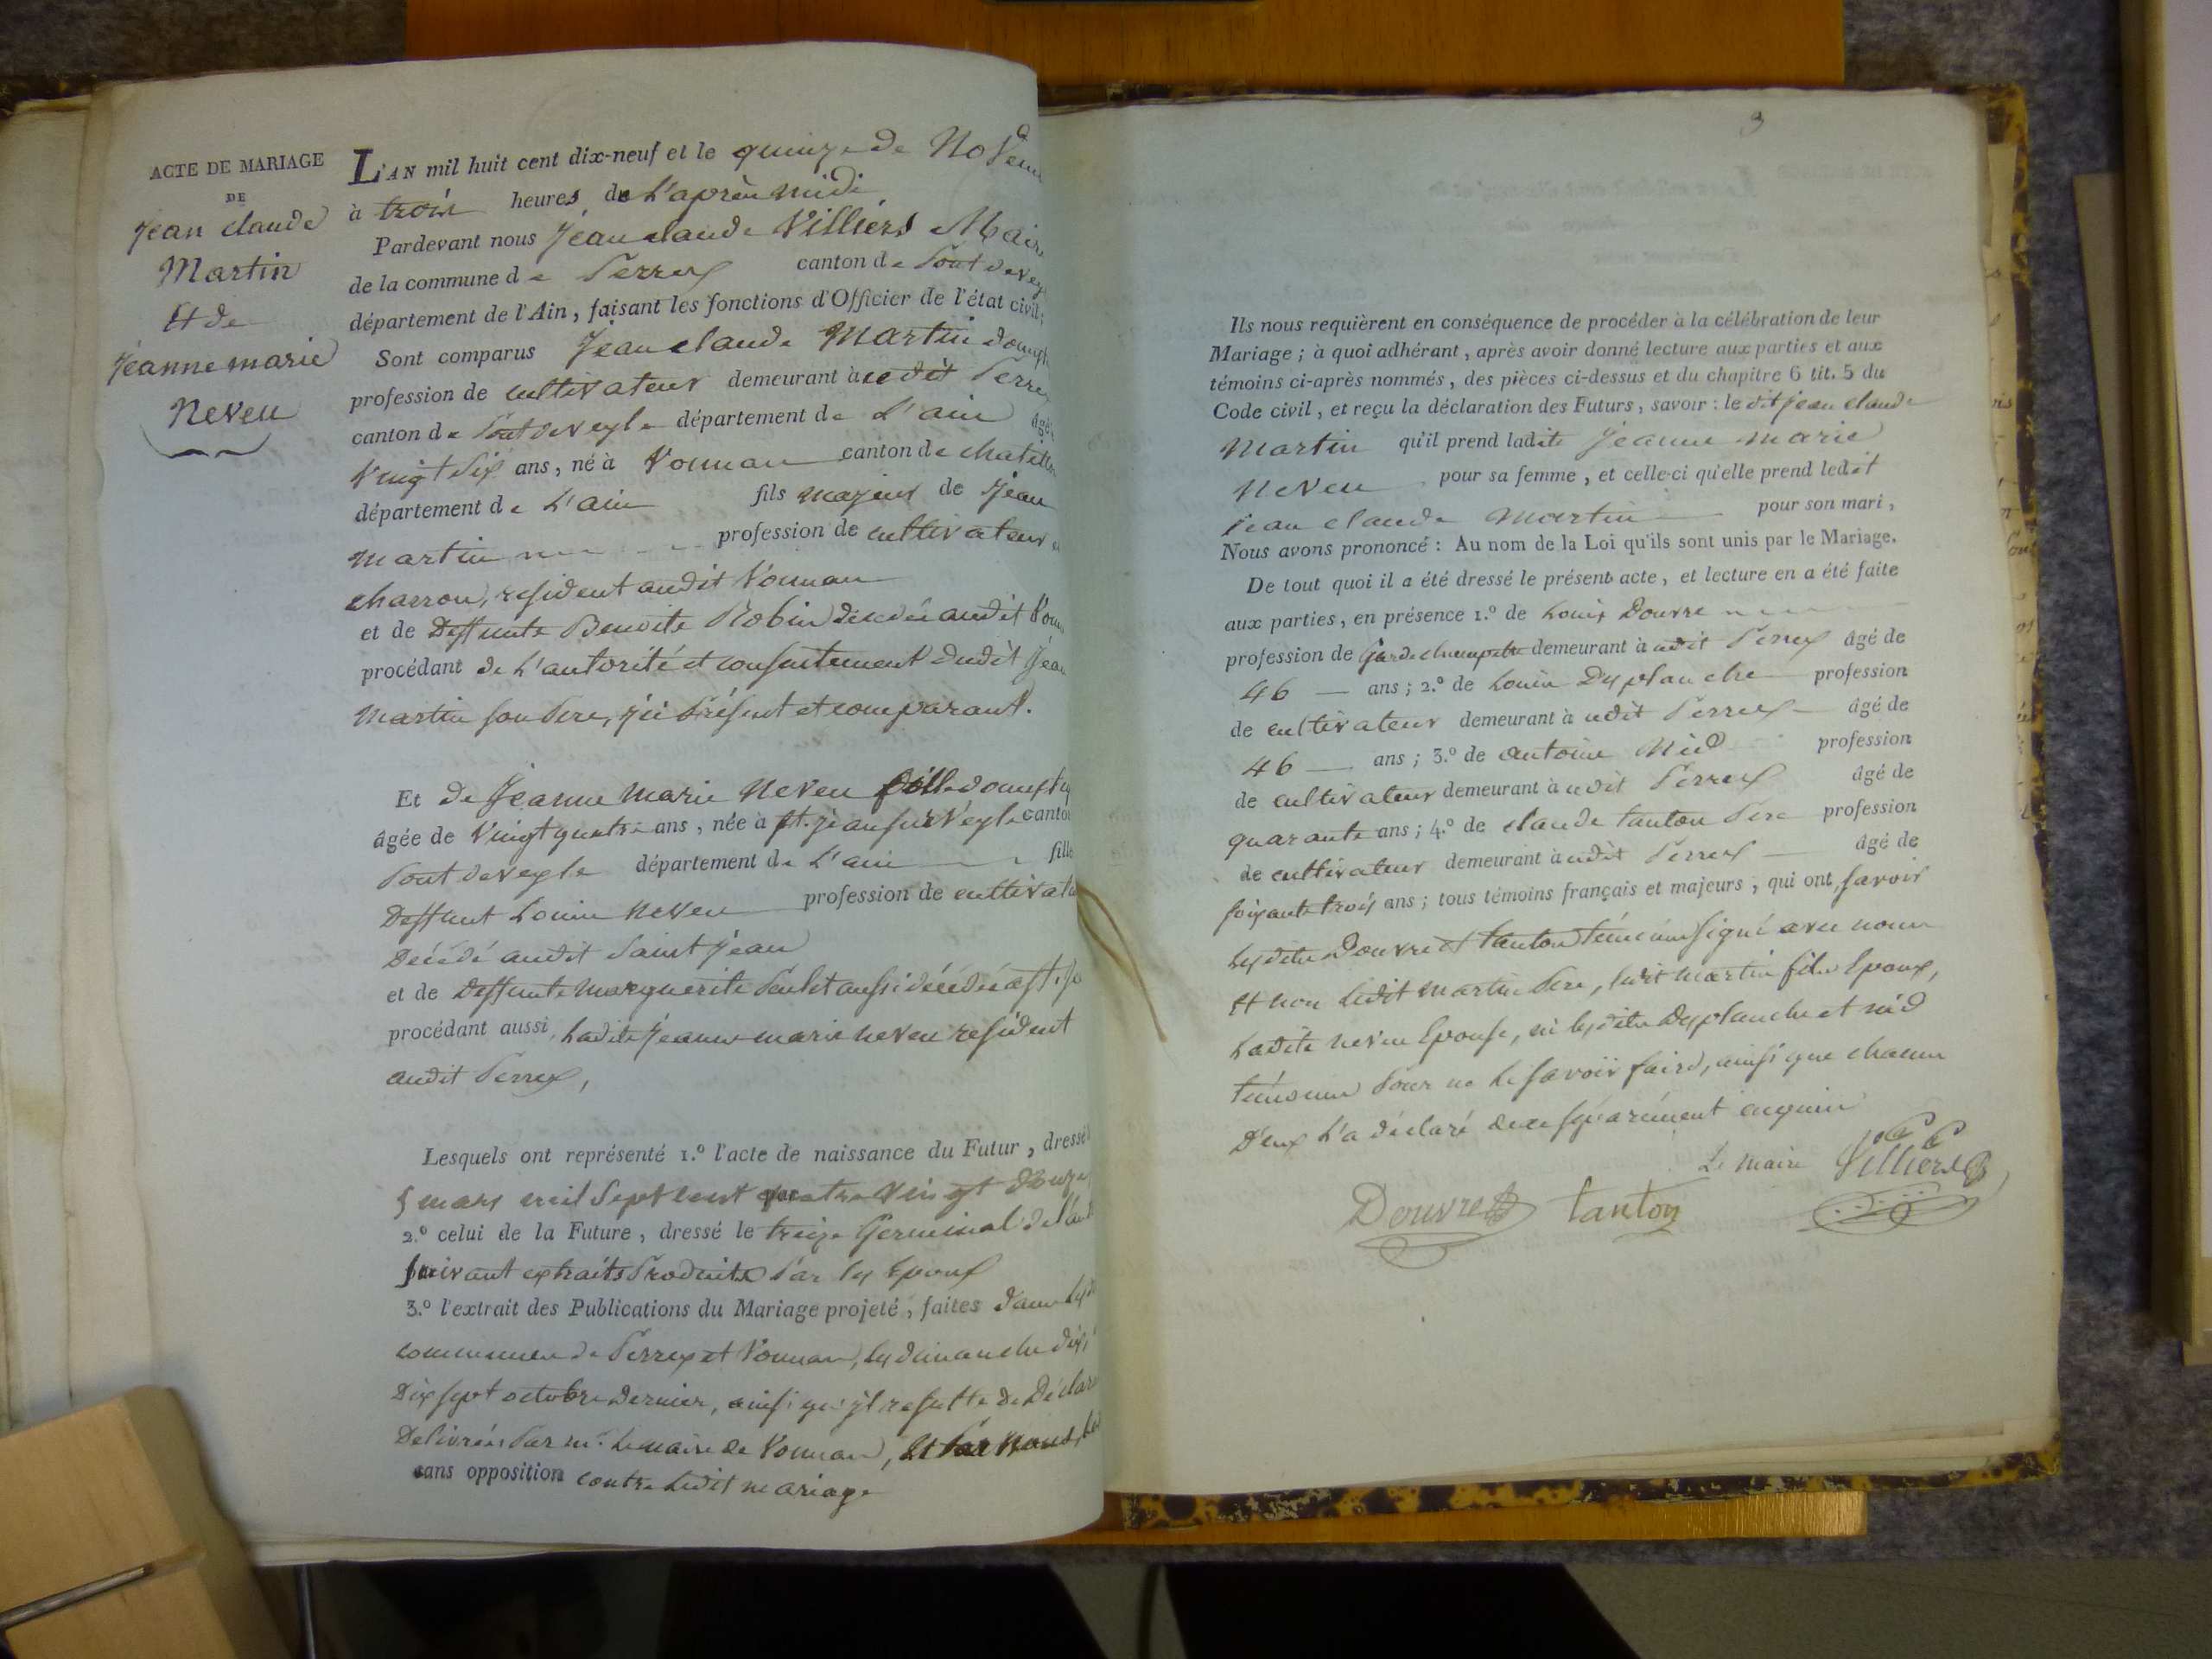 ACTE DE MARIAGE
DE
Jean claude
Martin
Et de
Jeanne marie
Neveu
L'AN mil huit cent dix-neuf et le quinze de Novem
à trois heures de L'après midi
Pardevant nous Jean claude Villiers Maire
de la commune de Perrex canton de Pont de vey
département de l'Ain, faisant les fonctions d'Officier de l'état civil,
Sont comparus Jean claude Martin domest
profession de cultivateur demeurant à cedit Perrex
canton de Pont de veyle département de L'ain âgé
Vingt Six ans, né à Vonnas canton de chatillon
département de L'ain fils majeur de Jean
Martin profession de cultivateur
charron, resident audit Vonnas
et de Deffunte Benoite Robin décédée audit Vonn
procédant de L'autorité et consentement dudit Jean
Martin son Pere, ici Présent et comparant.
Et de Jeanne Marie Neveu fille domestiq
âgée de Vingt quatre ans, née à St. jean sur Veyle canton
Pont de veyle département de L'ain fille
Deffunt Louis Neveu profession de cultivate
Décédé audit Saint Jean
et de Deffunte Marguerite Poulet aussi décédée
procédant aussi, Ladite Jeanne marie neveu resident
audit Perrex,
Lesquels ont représenté 1.º l'acte de naissance du Futur, dressé
5 mars mil Sept cent quatre Vingt Douze
2.º celui de la Future, dressé le treize Germinal de l'an
suivant extraits Produits Par les Epoux
3.º l'extrait des Publications du Mariage projeté, faites dans les
communes de Perrex et Vonnas, les dimanches dix
Dix sept octobre Dernier, ainsi qu'il resulte de Déclara
Delivrés Par mr. Le maire de Vonnas, et Par Nous,
sans opposition contre Ledit mariage
9
Ils nous requièrent en conséquence de procéder à la célébration de leur
Mariage; à quoi adhérant, après avoir donné lecture aux parties et aux
témoins ci-après nommés, des pièces ci-dessus et du chapitre 6 tit. 5 du
Code civil, et reçu la déclaration des Futurs, savoir: le dit jean claude
Martin qu'il prend ladite Jeanne marie
Neveu pour sa femme, et celle-ci qu'elle prend ledit
jean claude Martin pour son mari,
Nous avons prononcé: Au nom de la Loi qu'ils sont unis par le Mariage.
De tout quoi il a été dressé le présent acte, et lecture en a été faite
aux parties, en présence 1.º de Louis Douvre
profession de Garde champetre demeurant à udit Perrex âgé de
46 ans; 2.º de Louis Desplanche profession
de cultivateur demeurant à udit Perrex âgé de
46 ans; 3.º de antoine Nid profession
de cultivateur demeurant à udit Perrex âgé de
quarante ans; 4.º de claude tanton Pere profession
de cultivateur demeurant à udit Perrex âgé de
soixante trois ans; tous témoins français et majeurs, qui ont, savoir
Lesdits Douvre et tanton témoins signé avec nous
Et non Ledit Martin Pere, ledit martin fils Epoux,
Ladite neveu Epouse, ni lesdits Desplanche et nid
témoins Pour ne Le savoir faire, ainsi que chacun
D'eux L'a déclaré de ce séparément enquis
Le maire Villiers
Douvre tanton